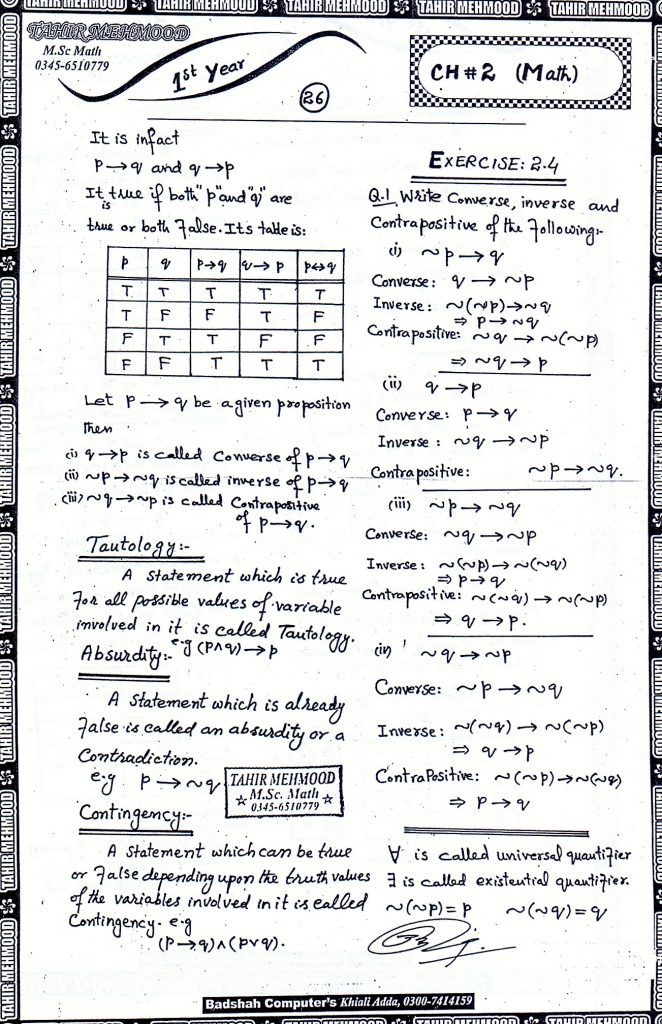 TAHIR MEHMOOD
M.Sc Math
0345-6510779
1st Year
26
CH # 2 (Math)
It is infact
p→q and q→p
It is true if both "p" and "q" are
true or both False. It's table is:
p q p→q q→p p↔q
T T T T T
T F F T F
F T T F F
F F T T T
Let p→q be a given proposition
then
(i) q→p is called Converse of p→q
(ii) ~p→~q is called inverse of p→q
(iii) ~q→~p is called Contrapositive
of p→q.
Tautology:-
A statement which is true
For all possible values of variable
involved in it is called Tautology.
e.g (p∧q)→p
Absurdity:-
A statement which is already
False is called an absurdity or a
Contradiction.
e.g p→~q
TAHIR MEHMOOD
M.Sc. Math
0345-6510779
Contingency:-
A statement which can be true
or False depending upon the truth values
of the variables involved in it is called
Contingency. e.g
(p→q)∧(p∨q).
EXERCISE: 2.4
Q.1 Write Converse, inverse and
Contrapositive of the Following:-
(i) ~p→q
Converse: q→~p
Inverse: ~(~p)→~q
⇒ p→~q
Contrapositive: ~q→~(~p)
⇒ ~q→p
(ii) q→p
Converse: p→q
Inverse: ~q→~p
Contrapositive: ~p→~q.
(iii) ~p→~q
Converse: ~q→~p
Inverse: ~(~p)→~(~q)
⇒ p→q
Contrapositive: ~(~q)→~(~p)
⇒ q→p.
(iv) ~q→~p
Converse: ~p→~q
Inverse: ~(~q)→~(~p)
⇒ q→p
ContraPositive: ~(~p)→~(~q)
⇒ p→q
∀ is called universal quantifier
∃ is called existential quantifier.
~(~p)=p ~(~q)=q
Badshah Computer's Khiali Adda, 0300-7414159